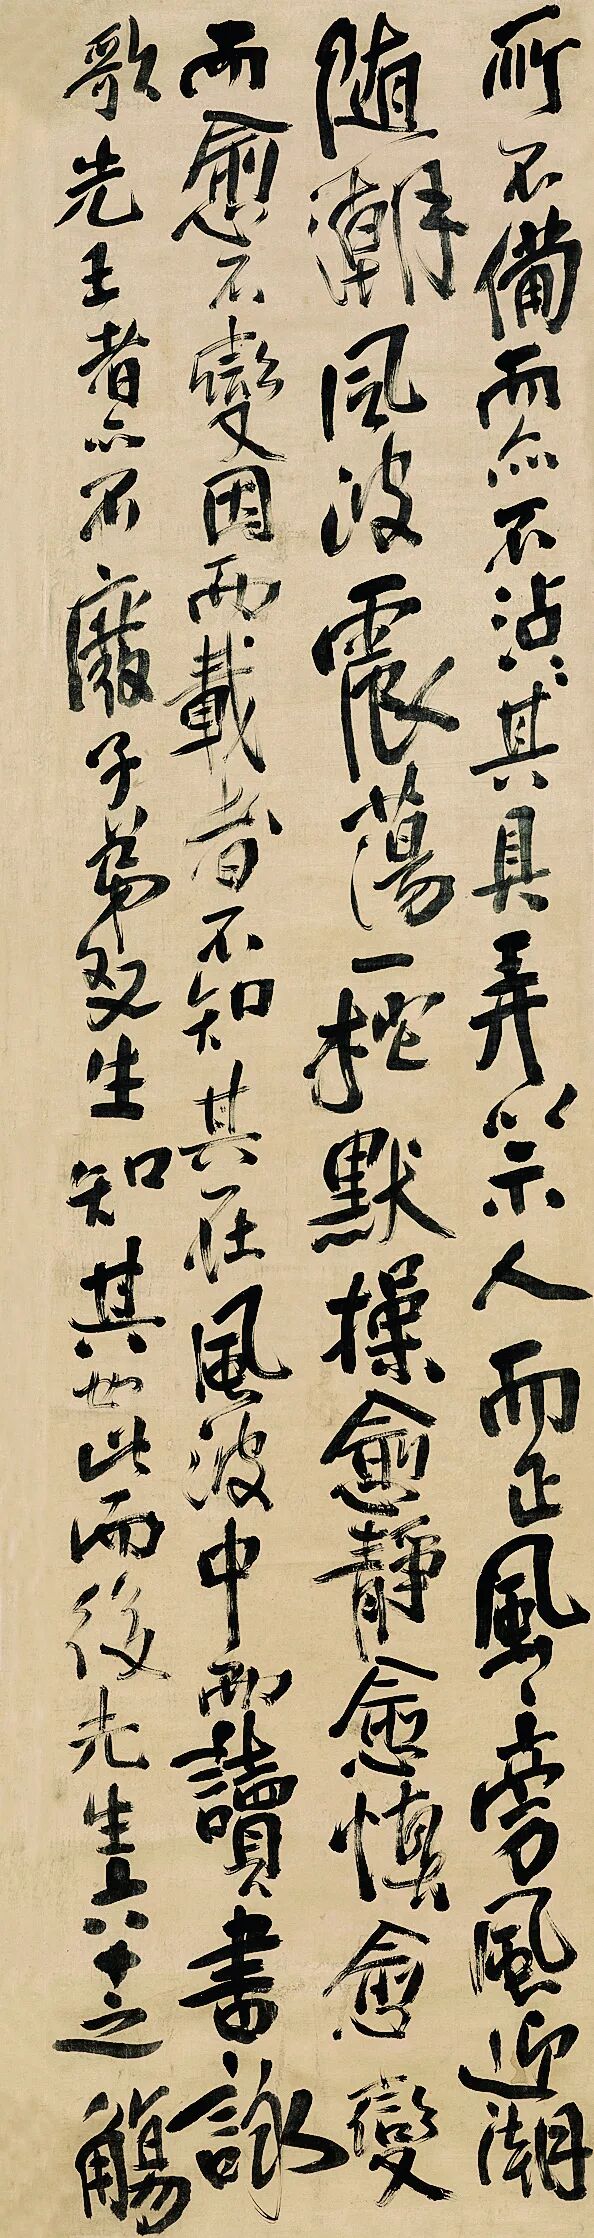 所不備而亦不沾沾其具弄以示人而正風旁風迎潮
随潮風波震蕩一柁默操愈静愈慎愈變
而愈不變因而載者不知其在風波中而讀書詠
歌先王者亦不廢子弟友生知其如此而後先生六十之觴